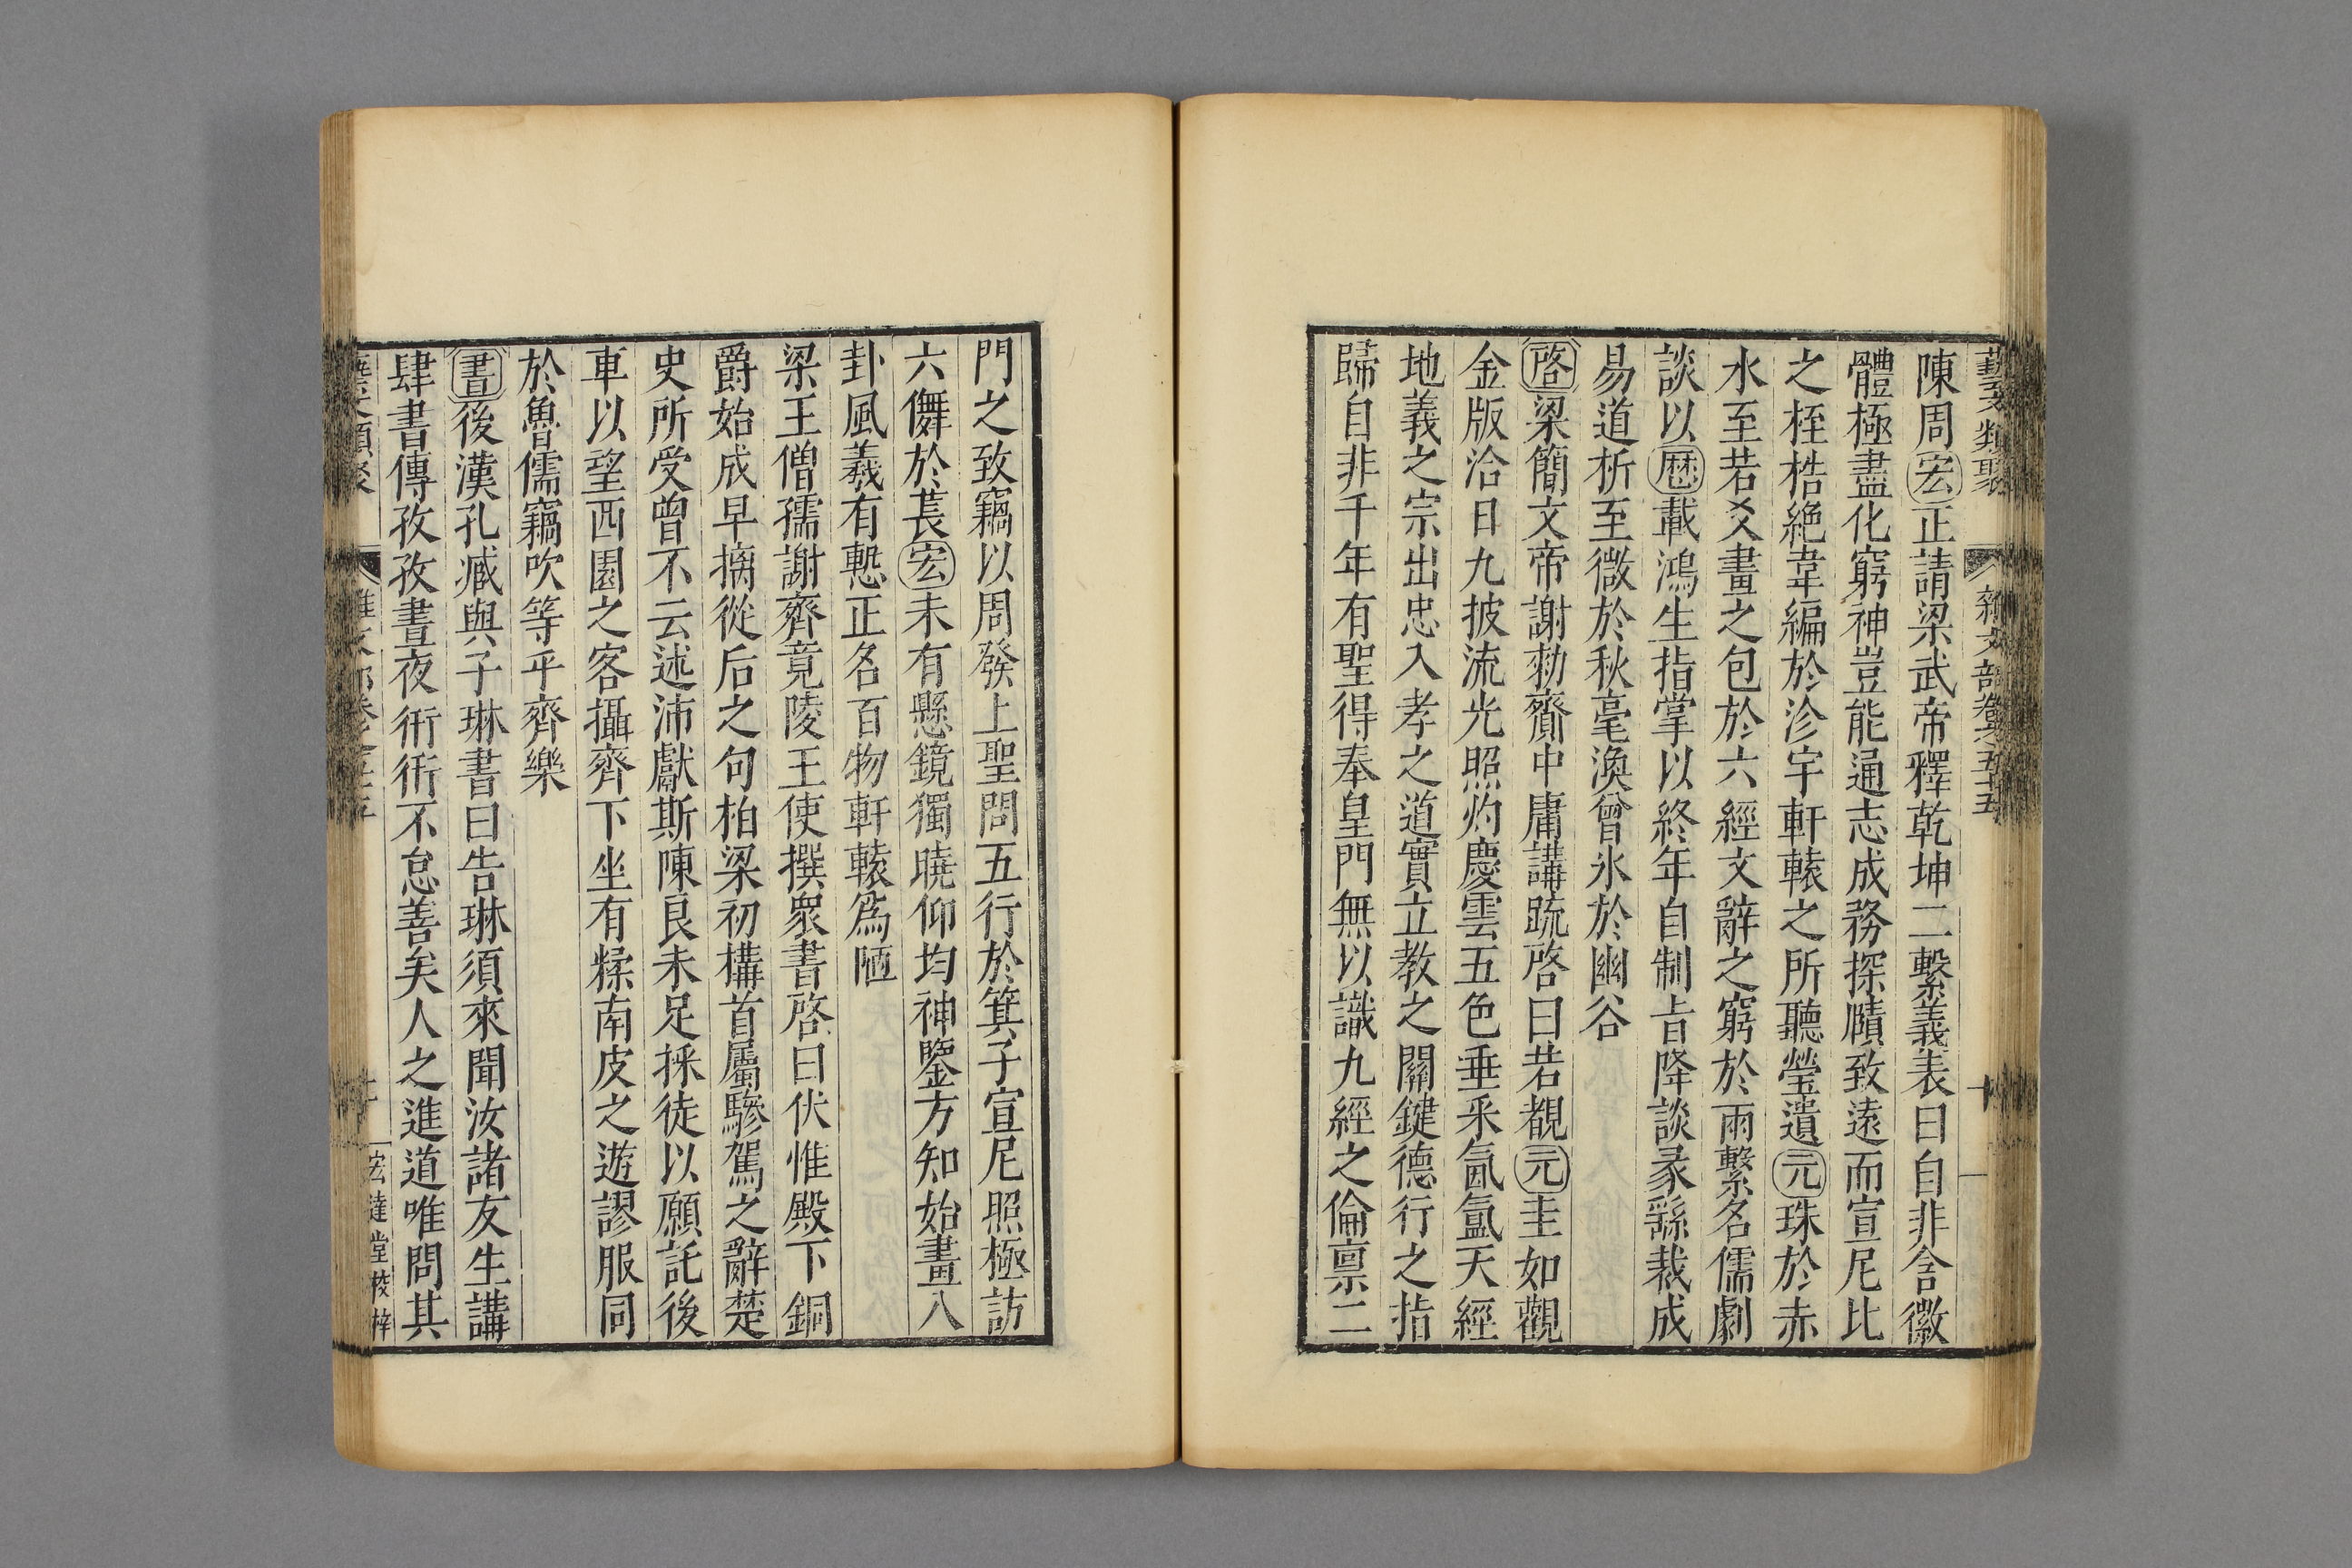 藝文類聚 雜文部卷之五十五 十
陳周宏正請梁武帝釋乾坤二繫義表曰自非含徽
體極盡化窮神豈能通志成務探賾致遠而宣尼比
之桎梏絶韋編於沴宇軒轅之所聽瑩遺元珠於赤
水至若爻畫之包於六經文辭之窮於兩繫名儒劇
談以歷載鴻生指掌以終年自制旨降談彖繇裁成
易道析至微於秋毫渙曾氷於幽谷
啓梁簡文帝謝勑齎中庸講疏啓曰若覩元圭如觀
金版洽日九披流光照灼慶雲五色垂采氤氳天經
地義之宗出忠入孝之道實立教之關鍵德行之指
歸自非千年有聖得奉皇門無以識九經之倫禀二
門之致竊以周發上聖問五行於箕子宣尼照極訪
六儛於萇宏未有懸鏡獨曉仰均神鑒方知始畫八
卦風羲有慙正名百物軒轅爲陋
梁王僧孺謝齊竟陵王使撰衆書啓曰伏惟殿下銅
爵始成早摛從后之句柏梁初構首屬驂駕之辭楚
史所受曾不云述沛獻斯陳良未足採徒以願託後
車以望西園之客攝齊下坐有糅南皮之遊謬服同
於魯儒竊吹等乎齊樂
書後漢孔臧與子琳書曰告琳須來聞汝諸友生講
肆書傳孜孜晝夜衎衎不怠善矣人之進道唯問其
文類聚 雜文部卷之五十五 十一 宏達堂校梓